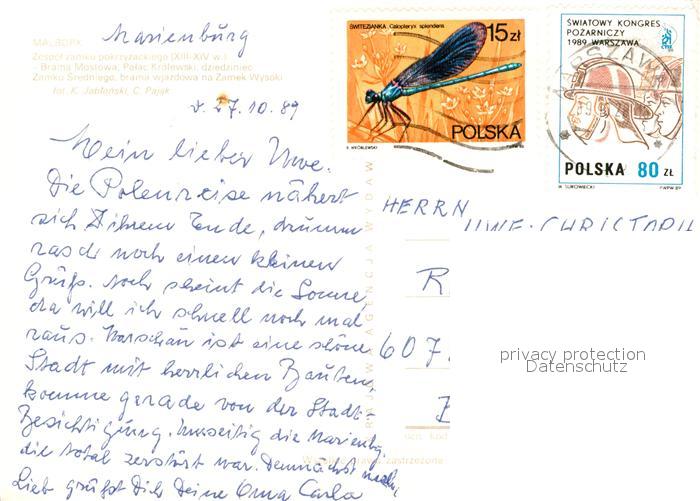 Marienburg
MALBORK
Zespół zamku pokrzyżackiego (XIII-XIV w.)
– Brama Mostowa, Pałac Królewski, dziedziniec
Zamku Średniego, brama wjazdowa na Zamek Wysoki
fot. K. Jabłoński, C. Pająk
d. 27.10.89
Mein lieber Uwe.
Die Polenreise nähert
sich ihrem Ende, drum
rasch noch einen kleinen
Gruß. Noch scheint die Sonne,
da will ich schnell noch mal
raus. Warschau ist eine schöne
Stadt mit herrlichen Bauten,
komme gerade von der Stadt-
Besichtigung. Umseitig die Marienbg.
die total zerstört war. Demnächst mehr,
Lieb grüßt Dich Deine Oma Carla
ŚWITEZIANKA, Calopteryx splendens
15 zł
POLSKA
ŚWIATOWY KONGRES
POŻARNICZY
1989 WARSZAWA
WARSZAWA
POLSKA 80 ZŁ
HERRN
UWE-CHRISTOPH
R
607
privacy protection
Datenschutz
KRAJOWA AGENCJA WYDAW